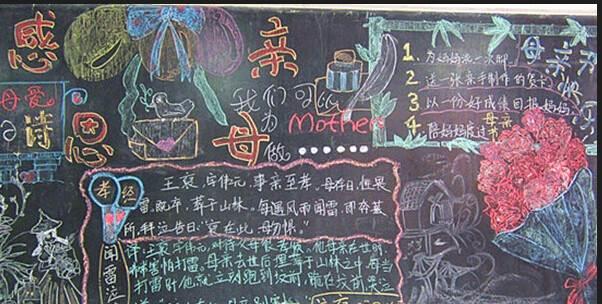 感恩
母亲
母爱
诗
我们可以
为 Mother
做……
1. 为妈妈洗一次脚
2. 送一张亲手制作的贺卡
3. 以一份好成绩回报妈妈
4. 陪妈妈度过母亲
母亲
孝经
王裒,字伟元,事亲至孝。母存日,性畏
雷,既卒,葬于山林。每遇风雨闻雷,即奔墓
所,拜泣告曰:"裒在此,母勿惧。"
闻雷泣
母亲在世时
打雷。母亲去世后,埋葬于山林之中,每当
打雷时,他就立刻跑到坟前,跪在坟前哭泣